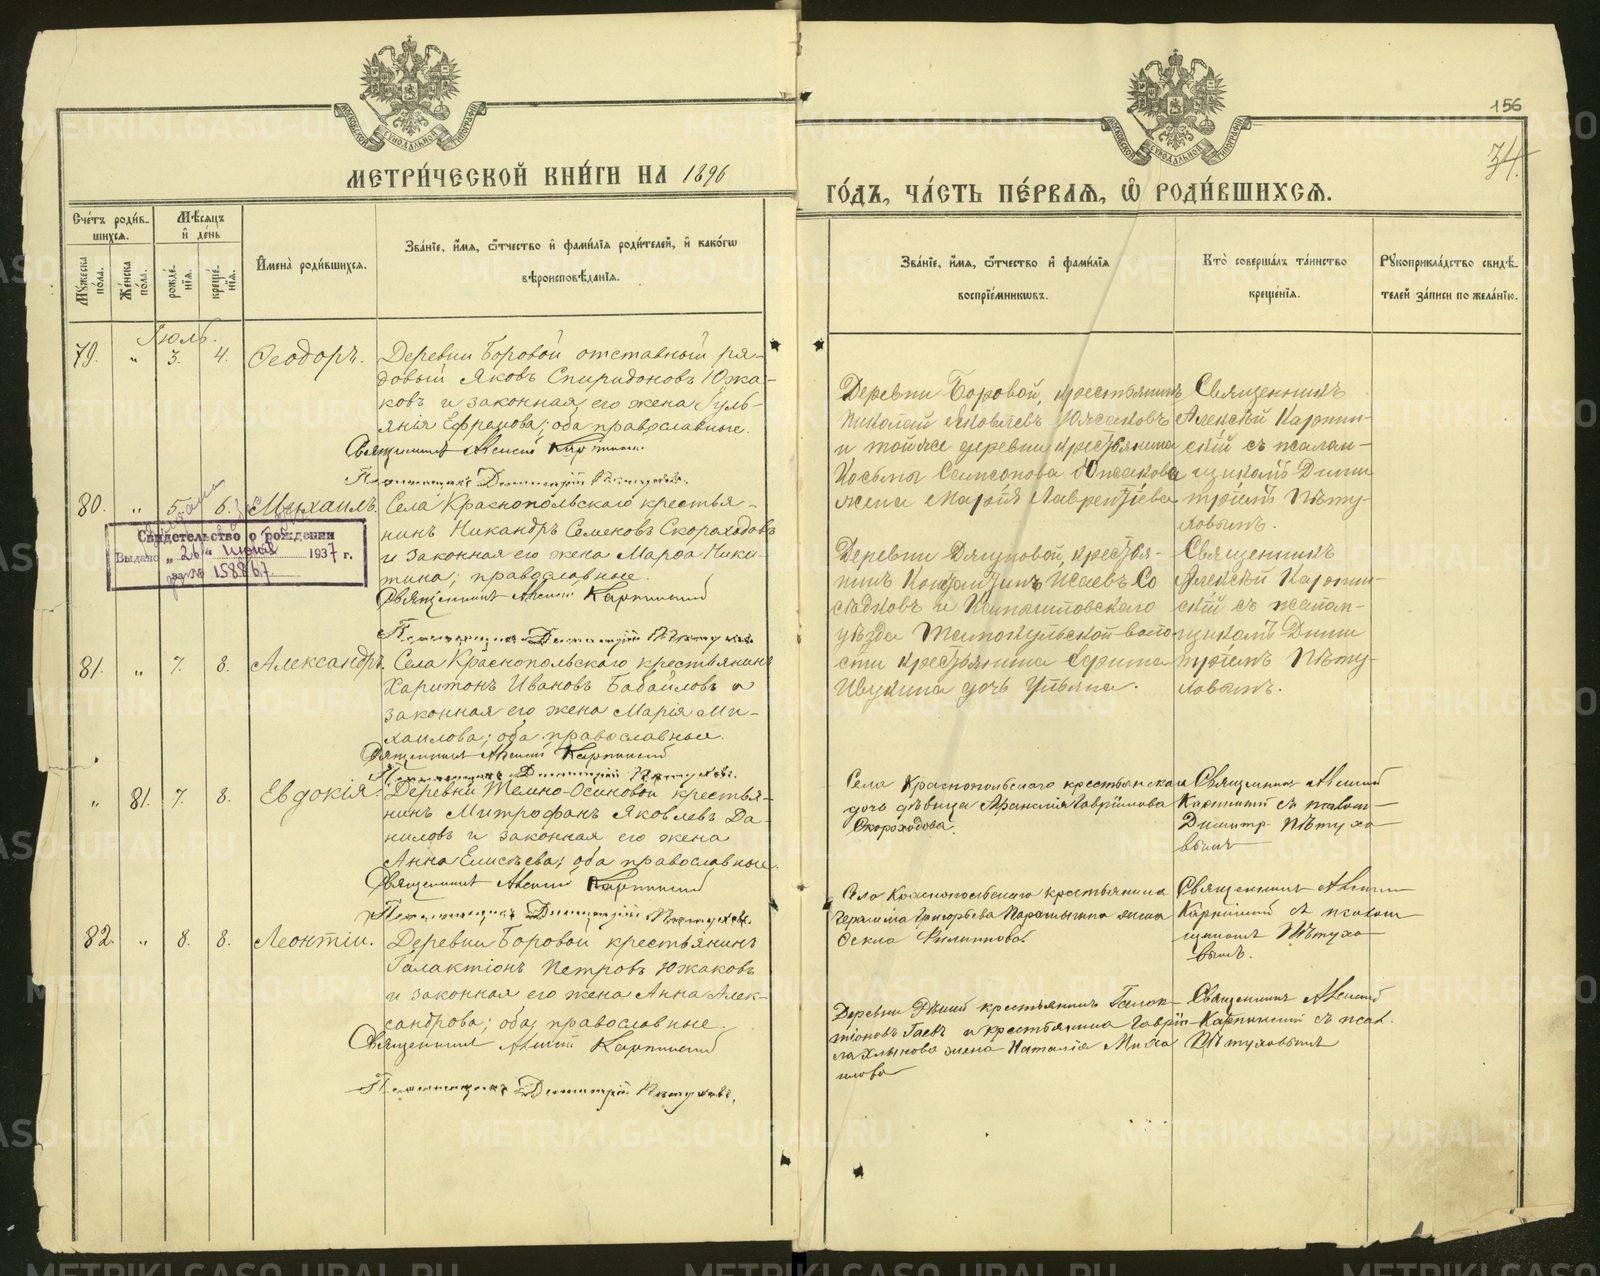 МОСКОВСКОЙ СѴНОДАЛЬНОЙ ТИПОГРАФІИ
МОСКОВСКОЙ СѴНОДАЛЬНОЙ ТИПОГРАФІИ
156
34.
МЕТРИ́ЧЕСКОЙ КНИ́ГИ НА 1896
ГО́ДЪ, ЧА́СТЬ ПЕ́РВАѦ, Ѽ РОДИ́ВШИХСѦ.
Сче́тъ роди́в-
шихсѧ.
Мѣ́сѧцъ
и҆ де́нь
Мꙋ́жеска
по́ла.
Же́нска
по́ла.
рожде́-
нїѧ.
креще́-
нїѧ.
И҆мена̀ роди́вшихсѧ.
Зва́нїе, и҆́мѧ, ѻ҆́тчество и҆ фами́лїѧ роди́телей, и҆ како́гѡ
вѣроисповѣ́данїѧ.
Зва́нїе, и҆́мѧ, ѻ҆́тчество и҆ фами́лїѧ
воспрїе́мникѡвъ.
Кто̀ соверша́лъ та́инство
креще́нїѧ.
Рꙋкоприкла́дство свидѣ́-
телей за́писи по жела́нїю.
Іюль.
79. " 3. 4. Ѳеодоръ. Деревни Боровой отставный ря-
довый Яковъ Спиридоновъ Южа-
ковъ и законная его жена Гуль-
янія Ефремова; оба православные.
Священникъ Алексій Карпинскій
Псаломщикъ Димитрій Пѣтуховъ.
Деревни Боровой, крестьянинъ
Николай Яковлевъ Южаковъ
и тойже деревни крестьянина
Косьмы Самсонова Южакова
жена Марѳа Лаврентіева
Священникъ
Алексѣй Карпин-
скій съ псалом-
щикомъ Дими
тріемъ Пѣту-
ховымъ.
80. " 5. 6. Михаилъ. Села Краснопольскаго крестья-
нинъ Никандръ Семеновъ Скороходовъ
и законная его жена Марѳа Ники-
тина; православные.
Священникъ Алексій Карпинскій
Псаломщикъ Димитрій Пѣтуховъ
Свидетельство о рождении
Выдано „26" июня 1937 г.
за № 158867
Деревни Дягуновой, крестья-
нинъ Константинъ Исаевъ Со
ладковъ и
уѣзда воло
сти крестьянина
дочь Ульяна.
Священникъ
Алексѣй Карпин-
скій съ псалом-
щикомъ Дими
тріемъ Пѣту-
ховымъ.
81. " 7. 8. Александръ. Села Краснопольскаго крестьянинъ
Харитонъ Ивановъ Бабайловъ и
законная его жена Марія Ми-
хаилова; оба православные.
Священникъ Алексій Карпинскій
Псаломщикъ Димитрій Пѣтуховъ.
Села Краснопольскаго крестьянская
дочь дѣвица Аѳанасія Гавріилова
Скороходова.
Священникъ Алексій
Карпинскій съ псалом-
Димитр. Пѣтухо
вымъ
" 81. 7. 8. Евдокія. Деревни Темно-Осиновой крестья-
нинъ Митрофанъ Яковлевъ Да-
ниловъ и законная его жена
Анна Елисѣева; оба православные.
Священникъ Алексій Карпинскій
Псаломщикъ Димитрій Пѣтуховъ.
Села Краснопольскаго крестьянина
Герасима Григорьева жена
Ѳекла Филиппова.
Священникъ Алексій
Карпинскій съ псалом
щикомъ Пѣтухо
вымъ.
82. " 8. 8. Леонтіи. Деревни Боровой крестьянинъ
Галактіонъ Петровъ Южаковъ
и законная его жена Анна Алек-
сандрова; оба православные.
Священникъ Алексій Карпинскій
Псаломщикъ Димитрій Пѣтуховъ.
Деревни крестьянинъ Галак-
тіоновъ и крестьянина Гаврі-
ла Хлынова жена Наталія Миха
илова
Священникъ Алексій
Карпинскій съ псал.
Пѣтуховымъ
METRIKI.GASO-URAL.RU